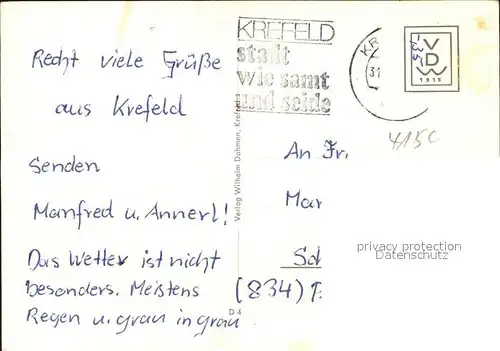 Recht viele Grüße
aus Krefeld
Senden
Manfred u. Annerl!
Das Wetter ist nicht
besonders. Meistens
Regen u. grau in grau
KREFELD
stadt
wie samt
und seide
KR
31
VDW
1915
4150
Verlag Wilhelm Dahmen, Krefeld
D 4
An Fr.
Mar
Sch
(834)
privacy protection
Datenschutz